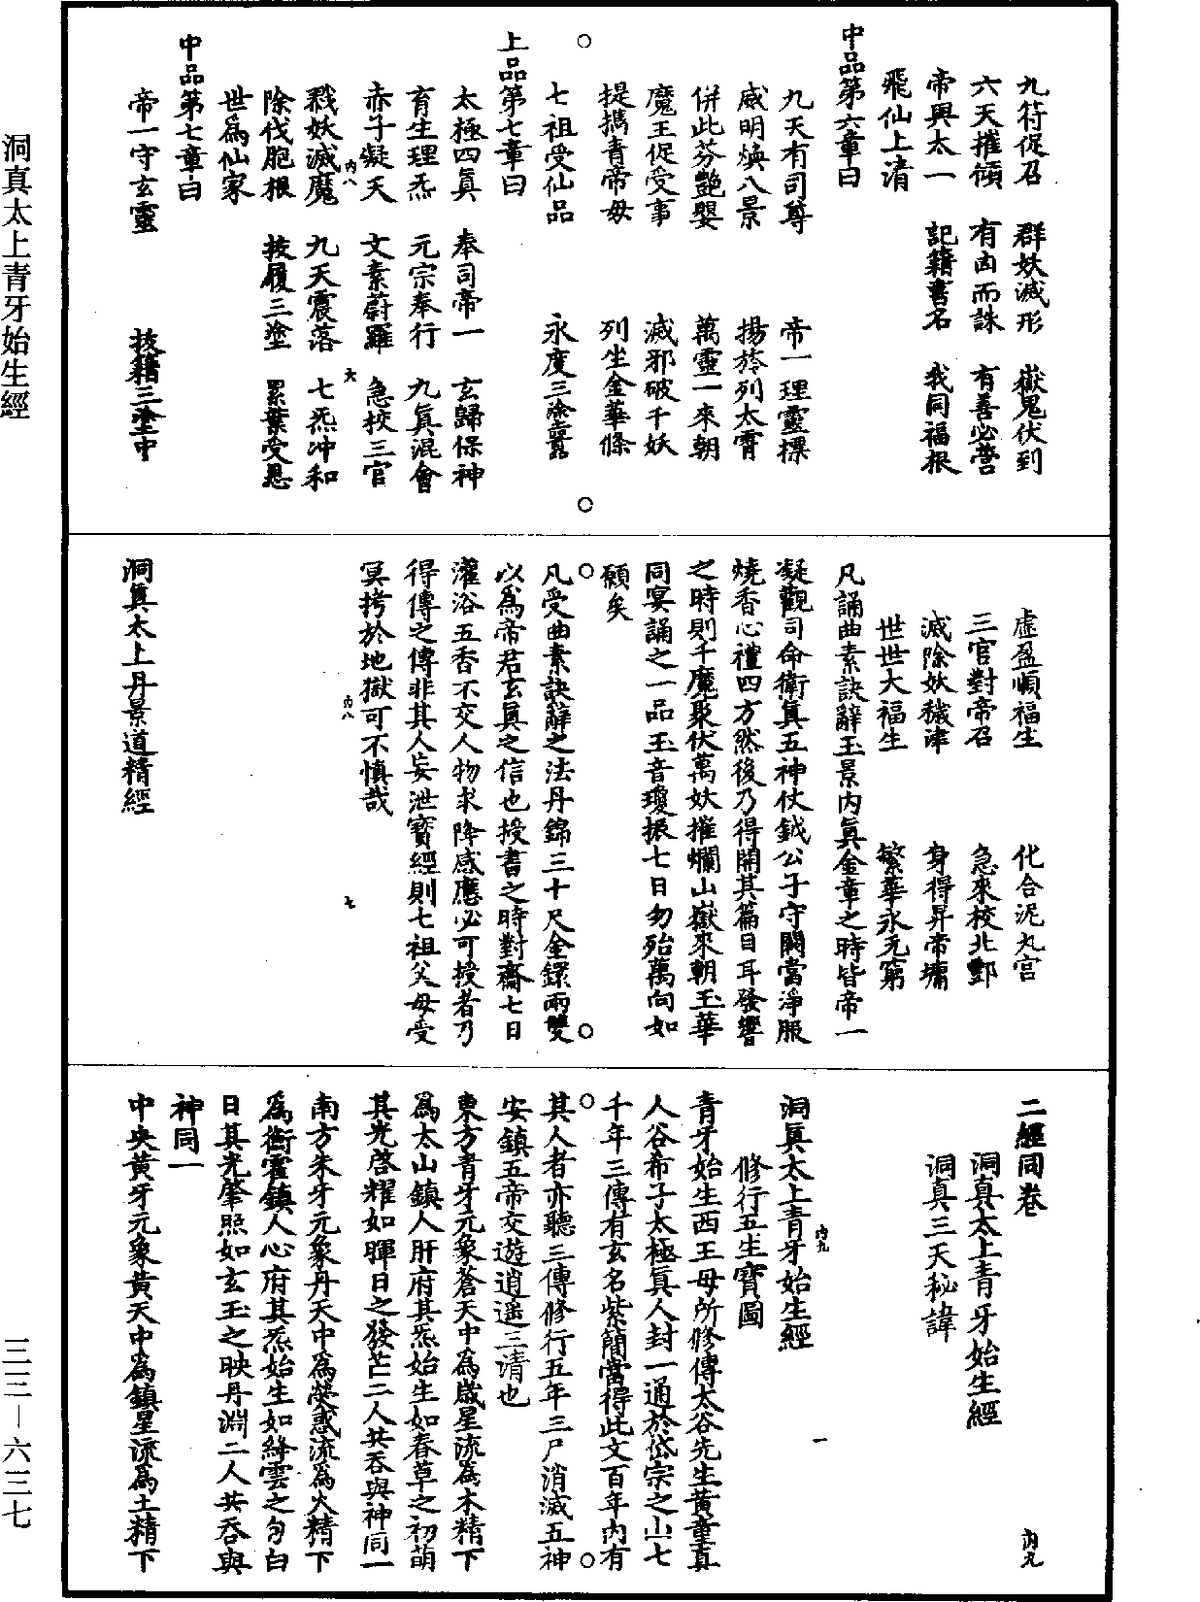 九符促召　群妖滅形　嶽鬼伏到
六天摧傾　有凶而誅　有善必營
帝與太一　記籍書名　我同福根
飛仙上清
中品第六章曰
九天有司尊　帝一理靈標
威明煥八景　揚旍列太霄
併此芬艷嬰　萬靈一來朝
魔王促受事　滅邪破千妖
提攜青帝母　列坐金華條
七祖受仙品　永度三塗囂
上品第七章曰
太極四真　奉司帝一　玄歸保神
育生理炁　元宗奉行　九真混會
赤子凝天　文素蔚羅　急校三官
戮妖滅魔　九天震落　七炁冲和
除伐胞根　拔履三塗　累葉受恩
世為仙家
中品第七章曰
帝一守玄靈　拔籍三塗中
内八　六
虛盈順福生　化合泥丸宫
三官對帝召　急來校北酆
滅除妖穢津　身得昇帝墉
世世大福生　繁華永无窮
凡誦曲素訣辭玉景内真金章之時皆帝一
凝觀司命衛真五神仗鉞公子守闕當淨服
燒香心禮四方然後乃得開其篇目耳發響
之時則千魔聚伏萬妖摧爛山嶽來朝玉華
同宴誦之一品玉音瓊振七日勿殆萬向如
願矣
凡受曲素訣辭之法丹錦三十尺金鐶兩雙
以為帝君玄真之信也授書之時對齋七日
灌浴五香不交人物求降感應必可授者乃
得傳之傳非其人妄泄寶經則七祖父母受
冥拷於地獄可不慎哉
内八　七
洞真太上丹景道精經
二經同卷　内九
洞真太上青牙始生經
洞真三天秘諱
洞真太上青牙始生經
内九　一
修行五生寶圖
青牙始生西王母所修傳太谷先生黃童真
人谷希子太極真人封一通於岱宗之山七
千年三傳有玄名紫簡當得此文百年内有
其人者亦聽三傳修行五年三尸消滅五神
安鎮五帝交遊逍遥三清也
東方青牙元象蒼天中為歲星流為木精下
為太山鎮人肝府其炁始生如春草之初萌
其光啓耀如暉日之發芒二人共吞與神同一
南方朱牙元象丹天中為熒惑流為火精下
為衡霍鎮人心府其炁始生如絳雲之匀白
日其光肇照如玄玉之映丹淵二人共吞與
神同一
中央黃牙元象黃天中為鎮星流為土精下
洞真太上青牙始生經
三三—六三七